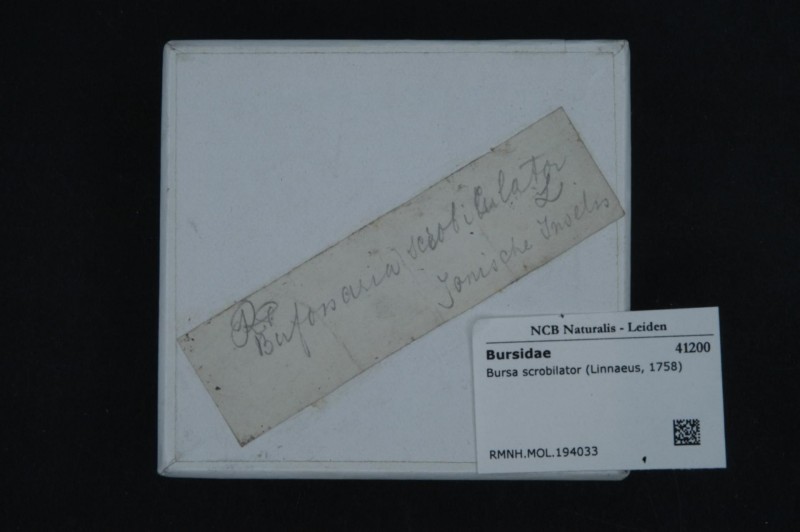 Bufonaria scrobiculator
L.
Ionische Inseln
NCB Naturalis - Leiden
Bursidae 41200
Bursa scrobilator (Linnaeus, 1758)
RMNH.MOL.194033